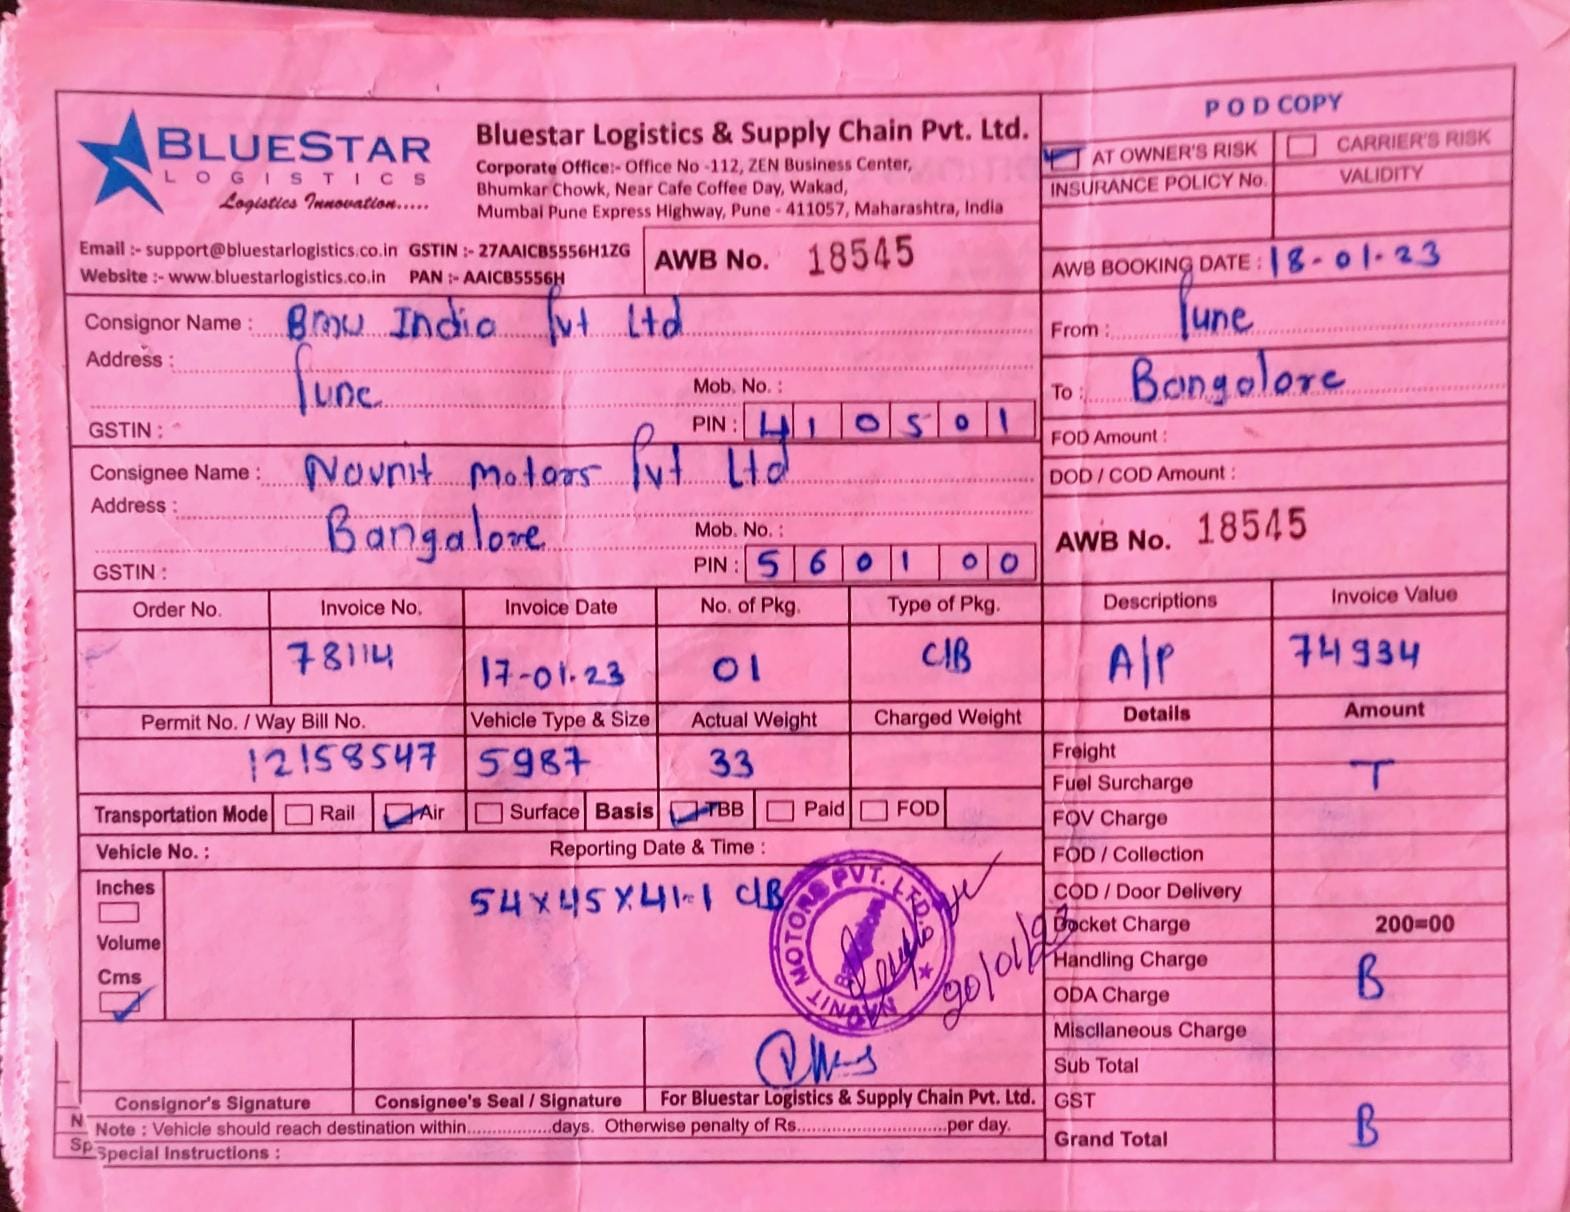 BLUESTAR
LOGISTICS
Logistics Innovation.....
Bluestar Logistics & Supply Chain Pvt. Ltd.
Corporate Office:- Office No -112, ZEN Business Center,
Bhumkar Chowk, Near Cafe Coffee Day, Wakad,
Mumbai Pune Express Highway, Pune - 411057, Maharashtra, India
Email :- support@bluestarlogistics.co.in GSTIN :- 27AAICB5556H1ZG
Website :- www.bluestarlogistics.co.in PAN :- AAICB5556H
AWB No. 18545
POD COPY
AT OWNER'S RISK CARRIER'S RISK
INSURANCE POLICY No. VALIDITY
AWB BOOKING DATE : 18-01-23
From : Pune
To : Bangalore
FOD Amount :
DOD / COD Amount :
AWB No. 18545
Consignor Name : Bmw India Pvt Ltd
Address :
Pune Mob. No. :
GSTIN : PIN : 410501
Consignee Name : Navnit Motors Pvt Ltd
Address :
Bangalore Mob. No. :
GSTIN : PIN : 560100
Order No. Invoice No. Invoice Date No. of Pkg. Type of Pkg. Descriptions Invoice Value
78114 17-01-23 01 C/B A/P 74934
Permit No. / Way Bill No. Vehicle Type & Size Actual Weight Charged Weight Details Amount
12158547 5987 33
Transportation Mode Rail Air Surface Basis TBB Paid FOD
Vehicle No. : Reporting Date & Time :
Inches
Volume
Cms
54x45x41-1 C/B
NAVNIT MOTORS PVT. LTD.
Bangalore
20/01/23
Freight
T
Fuel Surcharge
FOV Charge
FOD / Collection
COD / Door Delivery
Docket Charge 200=00
Handling Charge
B
ODA Charge
Miscllaneous Charge
Sub Total
GST
Grand Total B
Consignor's Signature Consignee's Seal / Signature For Bluestar Logistics & Supply Chain Pvt. Ltd.
Note : Vehicle should reach destination within...............days. Otherwise penalty of Rs...........................per day.
Special Instructions :